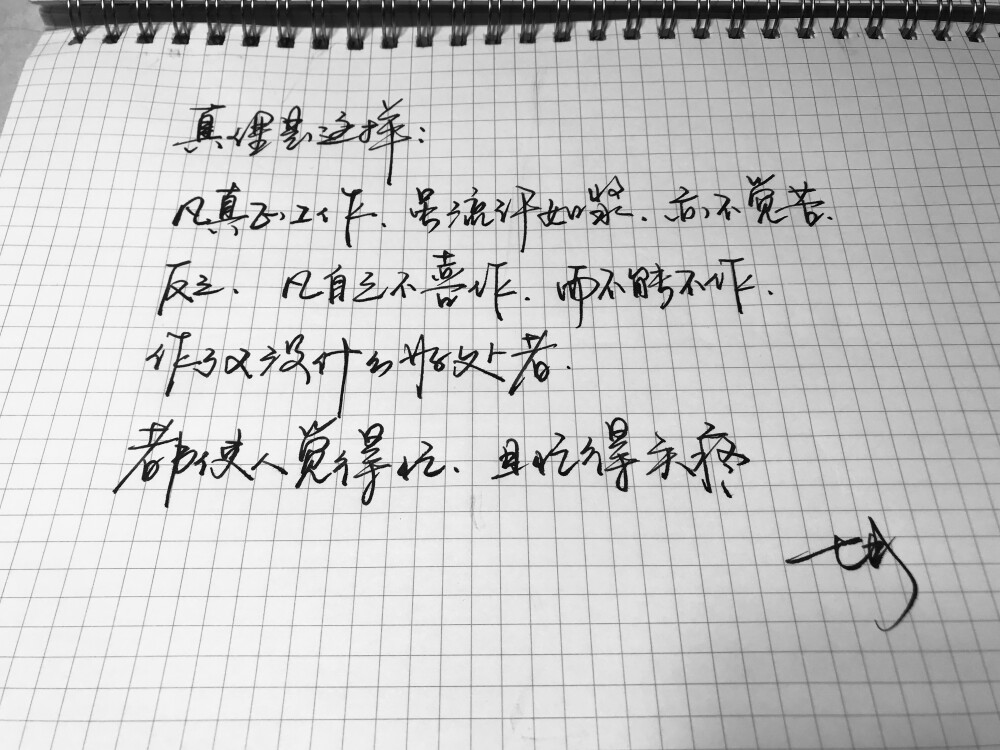 真理是这样:
凡真正工作,虽流汗如浆,亦不觉苦。
反之,凡自己不喜作,而不能不作,
作了又没什么好处者,
都使人觉得忙,且忙得头疼